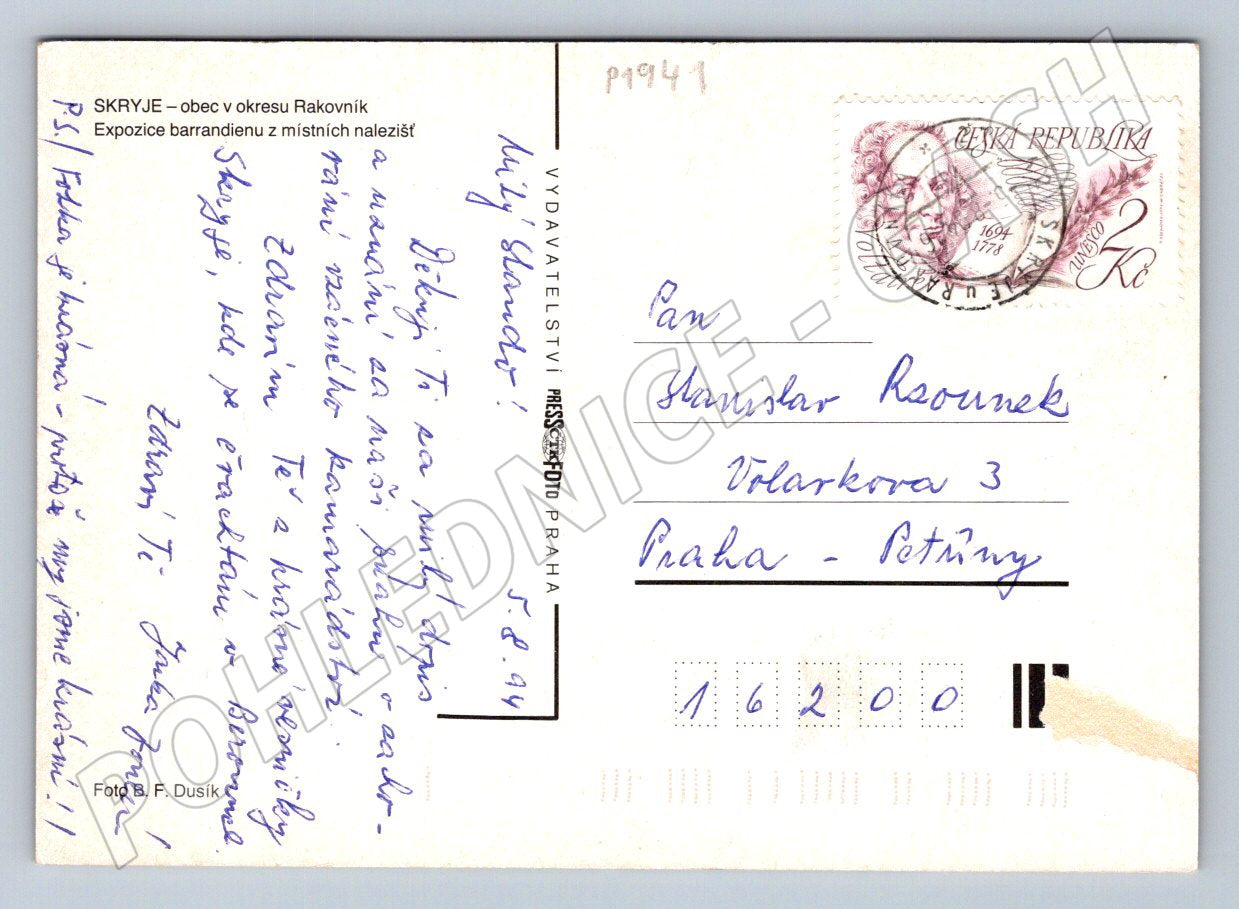 P1941
SKRYJE – obec v okresu Rakovník
Expozice barrandienu z místních nalezišť
Milý Stando! 5.8.94
Děkuji Ti za milý dopis
a uznání za naši snahu o zacho-
vání vzácného kamarádství.
Zdravím Tě z krásné vesničky
Skryje, kde se
v
Zdraví Tě Jirka
P.S./ Fotka je krásná – protož my jsme krásní!!
Foto B. F. Dusík
VYDAVATELSTVÍ PRESSFOTO PRAHA
ČTK
ČESKÁ REPUBLIKA
1694
1778
UNESCO
2
Kč
SKRYJE U
Pan
Stanislav
Volarkova 3
Praha – Petřiny
16200
POHLEDNICE - CASH